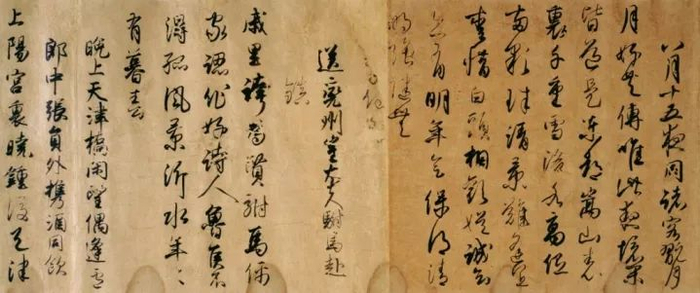 八月十五夜同諸客翫月
月好共傳唯此夜境閑
皆道是東都嵩山表
裏千重雪洛水高低
兩顆珠清景難逢宜
愛惜白頭相誠知
亦有明年會保得清
明強健無
送兗州崔大夫駙馬赴
鎮
戚里誇為賢駙馬儒
家認作好詩人魯侯不
得孤風景沂水年々
有暮春
晚上天津橋閑望偶逢盧
郎中張員外攜酒同飲
上陽宮裏曉鍾後天津